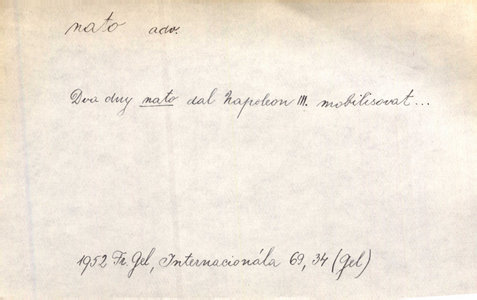 nato adv.
Dva dny nato dal Napoleon III. mobilisovat...
1952 Fr. Gel, Internacionála 69, 34 (Gel)